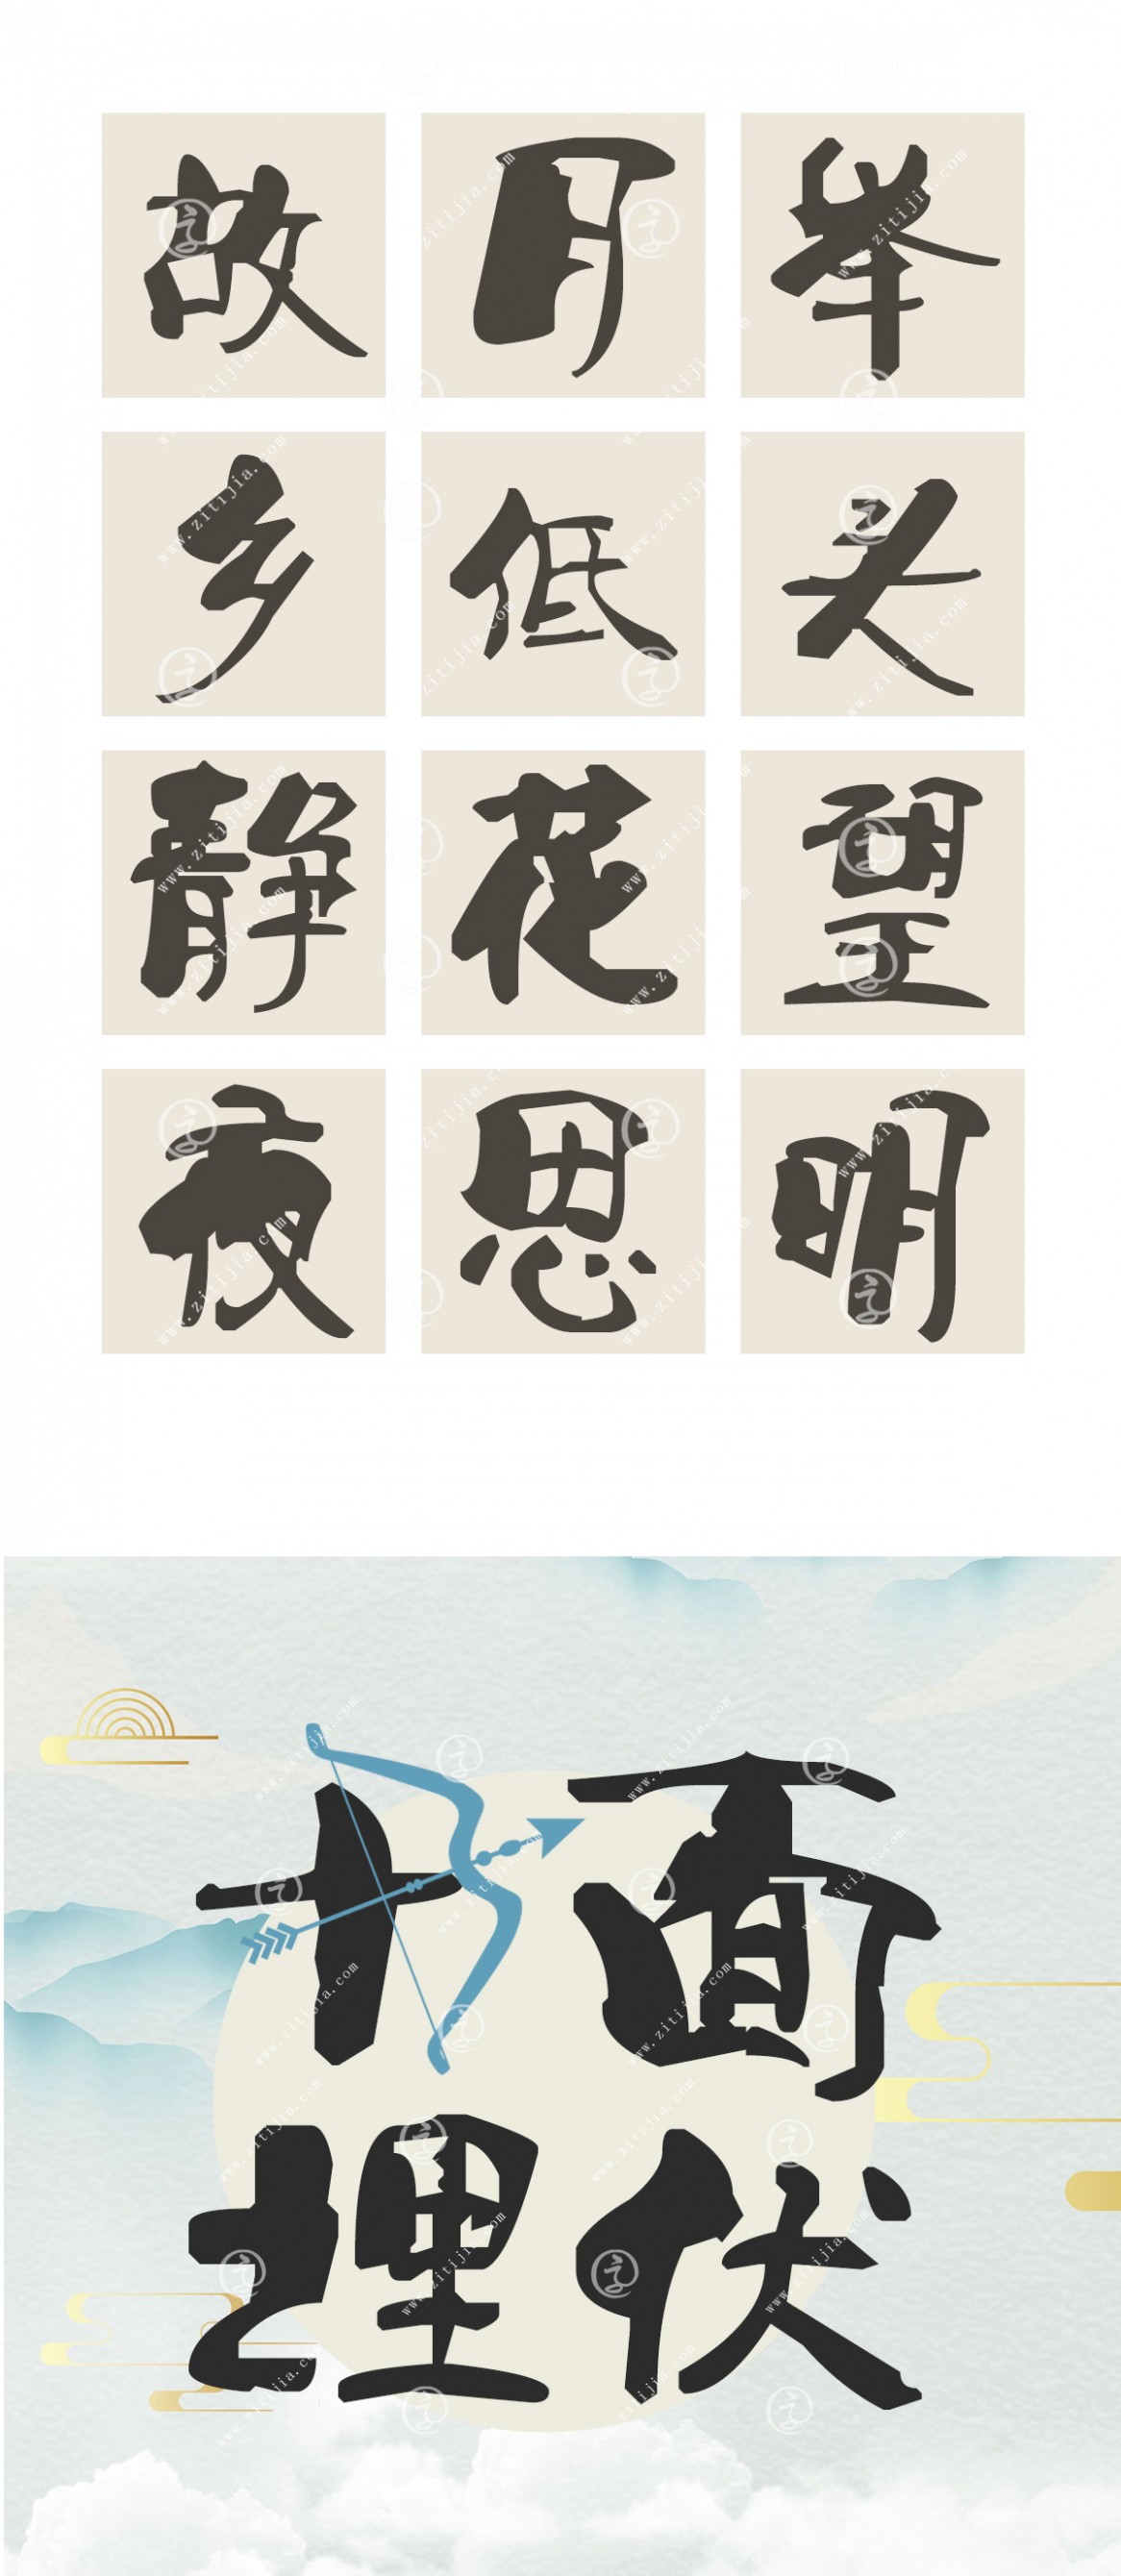 故月举
乡低头
静花望
夜思明
十面
埋伏
www.zitijia.com